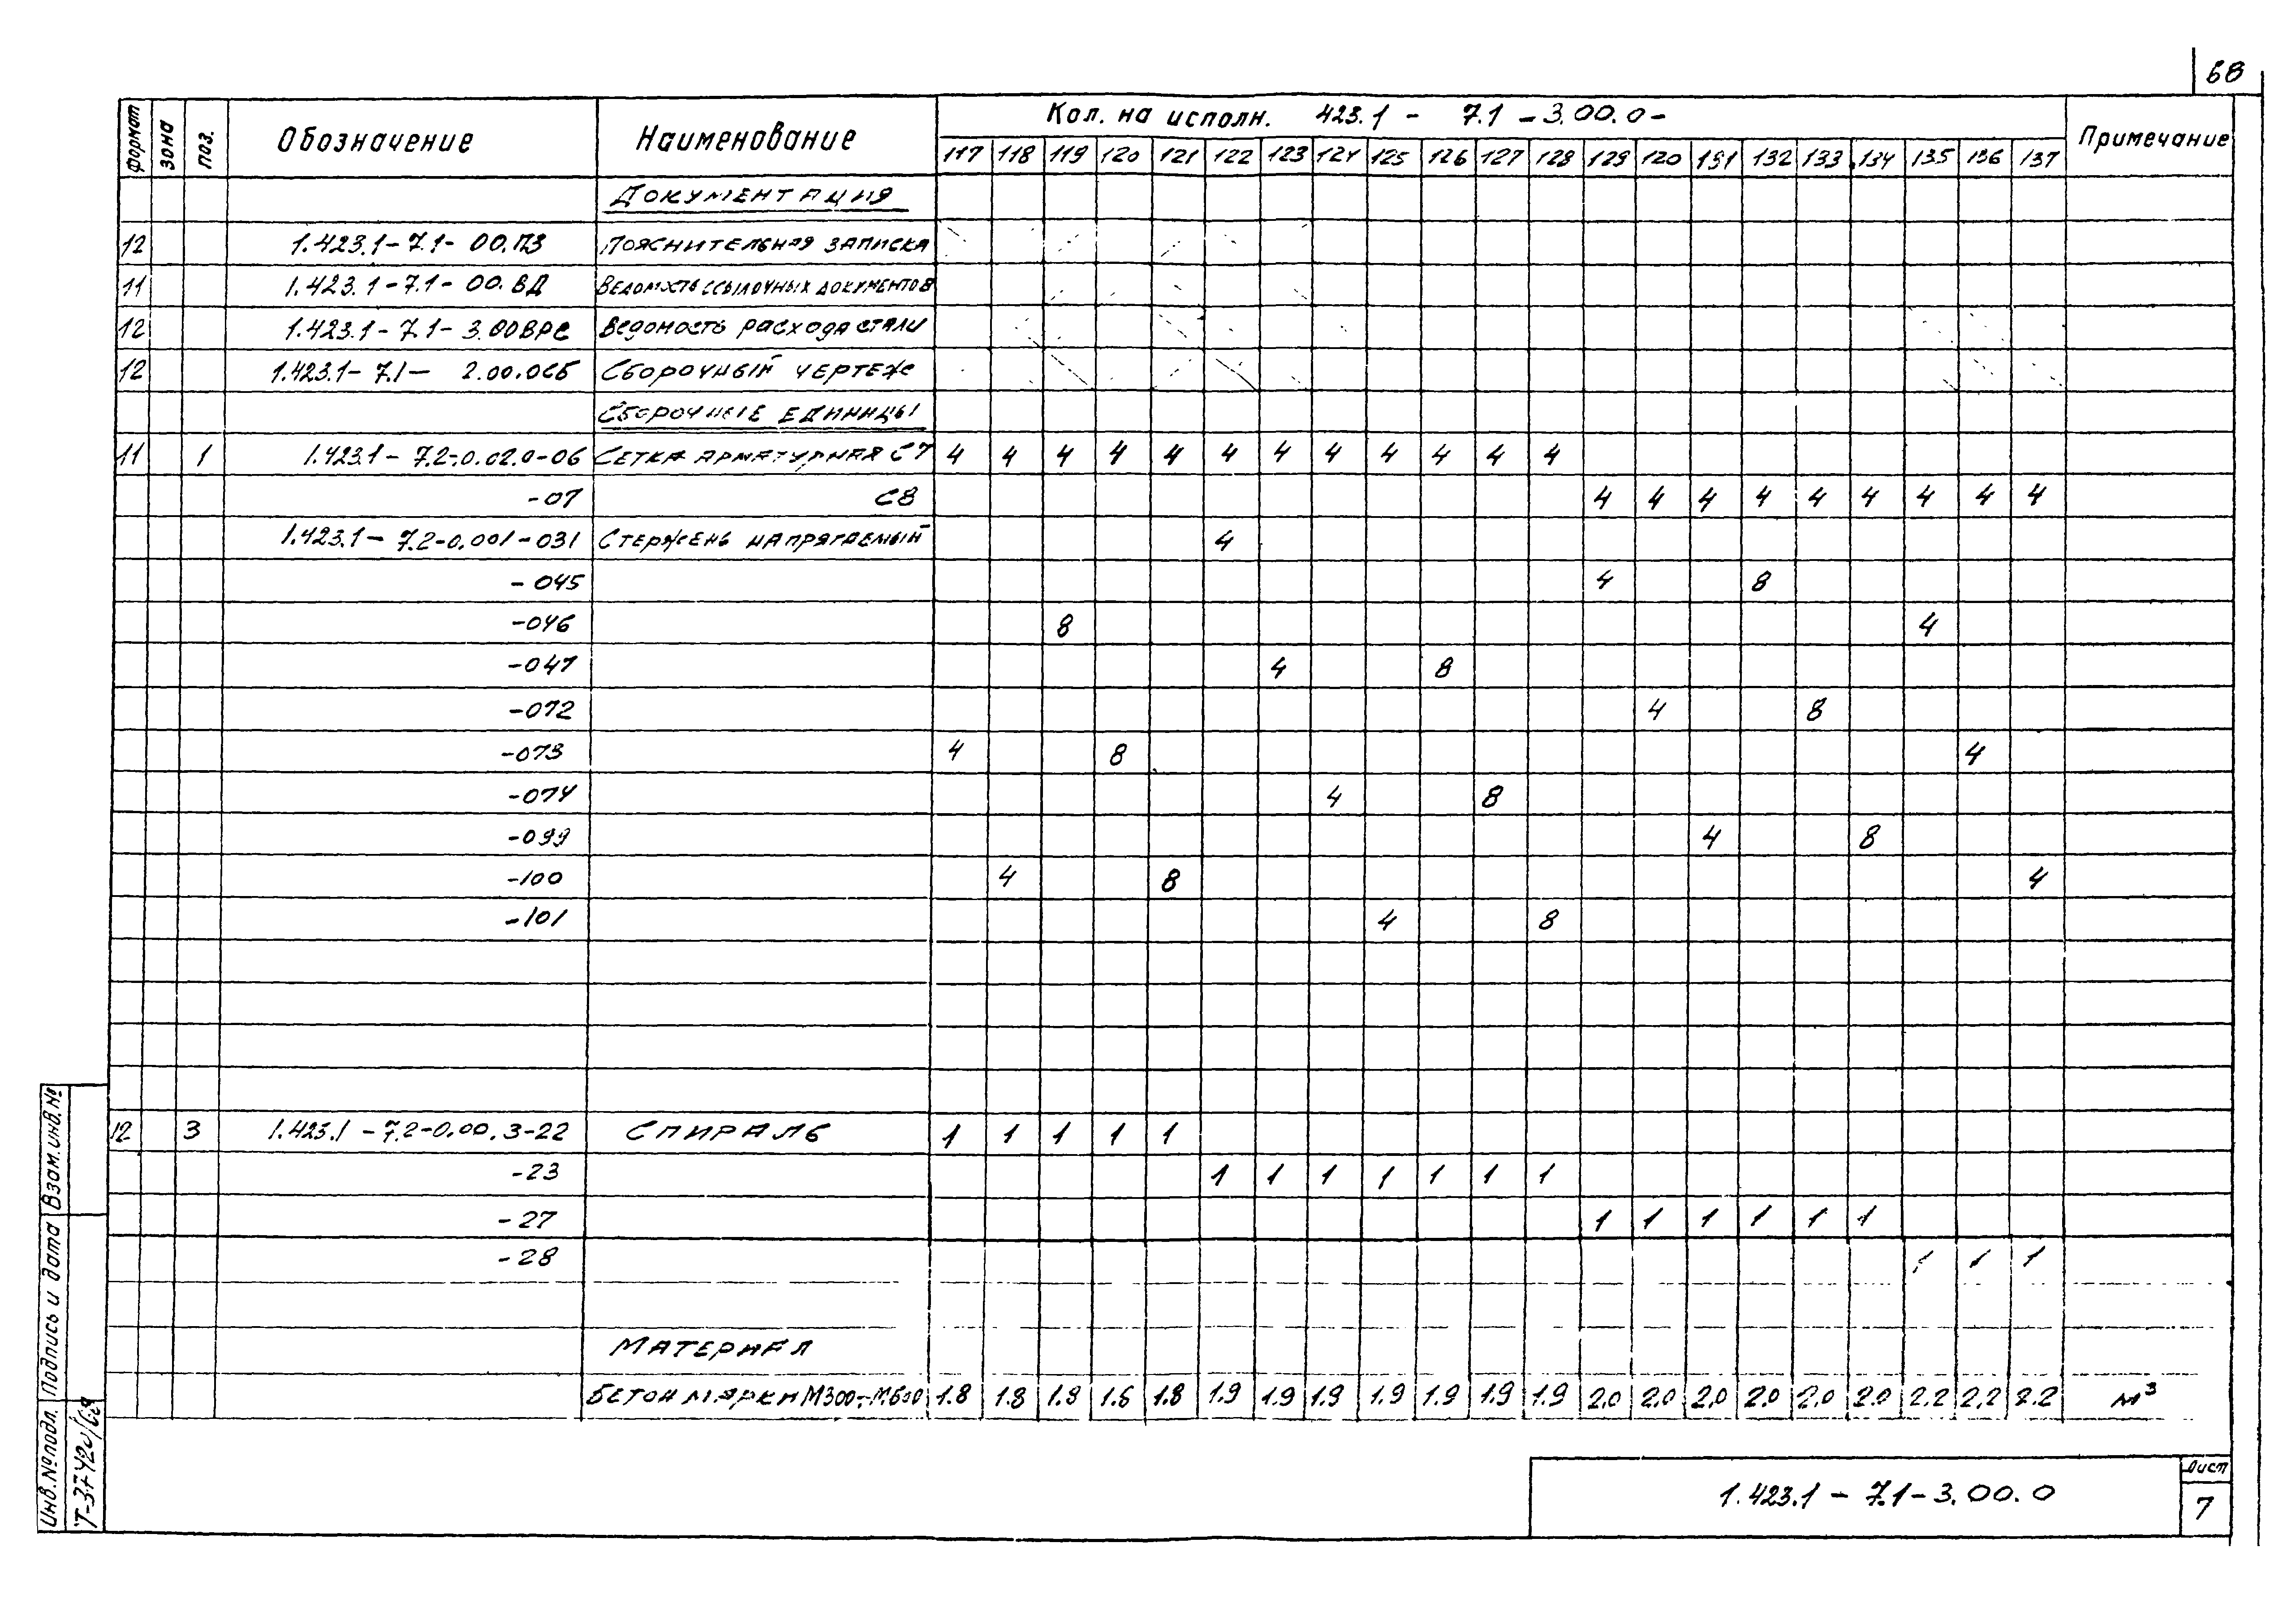 68
Формат Зона Поз. Обозначение Наименование Кол. на исполн. 423.1 - 7.1 - 3.00.0- Примечание
117 118 119 120 121 122 123 124 125 126 127 128 129 120 131 132 133 134 135 136 137
Документация
12 1.423.1-7.1-00.ПЗ Пояснительная записка
11 1.423.1-7.1-00.ВД Ведомость ссылочных документов
12 1.423.1-7.1-3.00ВРС Ведомость расхода стали
12 1.423.1-7.1- 2.00.0СБ Сборочный чертеж
Сборочные единицы
11 1 1.423.1-7.2-0.02.0-06 Сетка арматурная С7 4 4 4 4 4 4 4 4 4 4 4 4
-07 С8 4 4 4 4 4 4 4 4 4
1.423.1-7.2-0.001-031 Стержень напрягаемый 4
-045 4 8
-046 8 4
-047 4 8
-072 4 8
-073 4 8 4
-074 4 8
-099 4 8
-100 4 8 4
-101 4 8
12 3 1.423.1-7.2-0.00.3-22 Спираль 1 1 1 1 1
-23 1 1 1 1 1 1 1
-27 1 1 1 1 1 1
-28 1 1 1
Материал
Бетон марки М300÷М600 1.8 1.8 1.8 1.6 1.8 1.9 1.9 1.9 1.9 1.9 1.9 1.9 2.0 2.0 2.0 2.0 2.0 2.0 2.2 2.2 2.2 м³
Инв.№подл. Подпись и дата Взам.инв.№
Т-37420/69
1.423.1 - 7.1-3.00.0
Лист
7